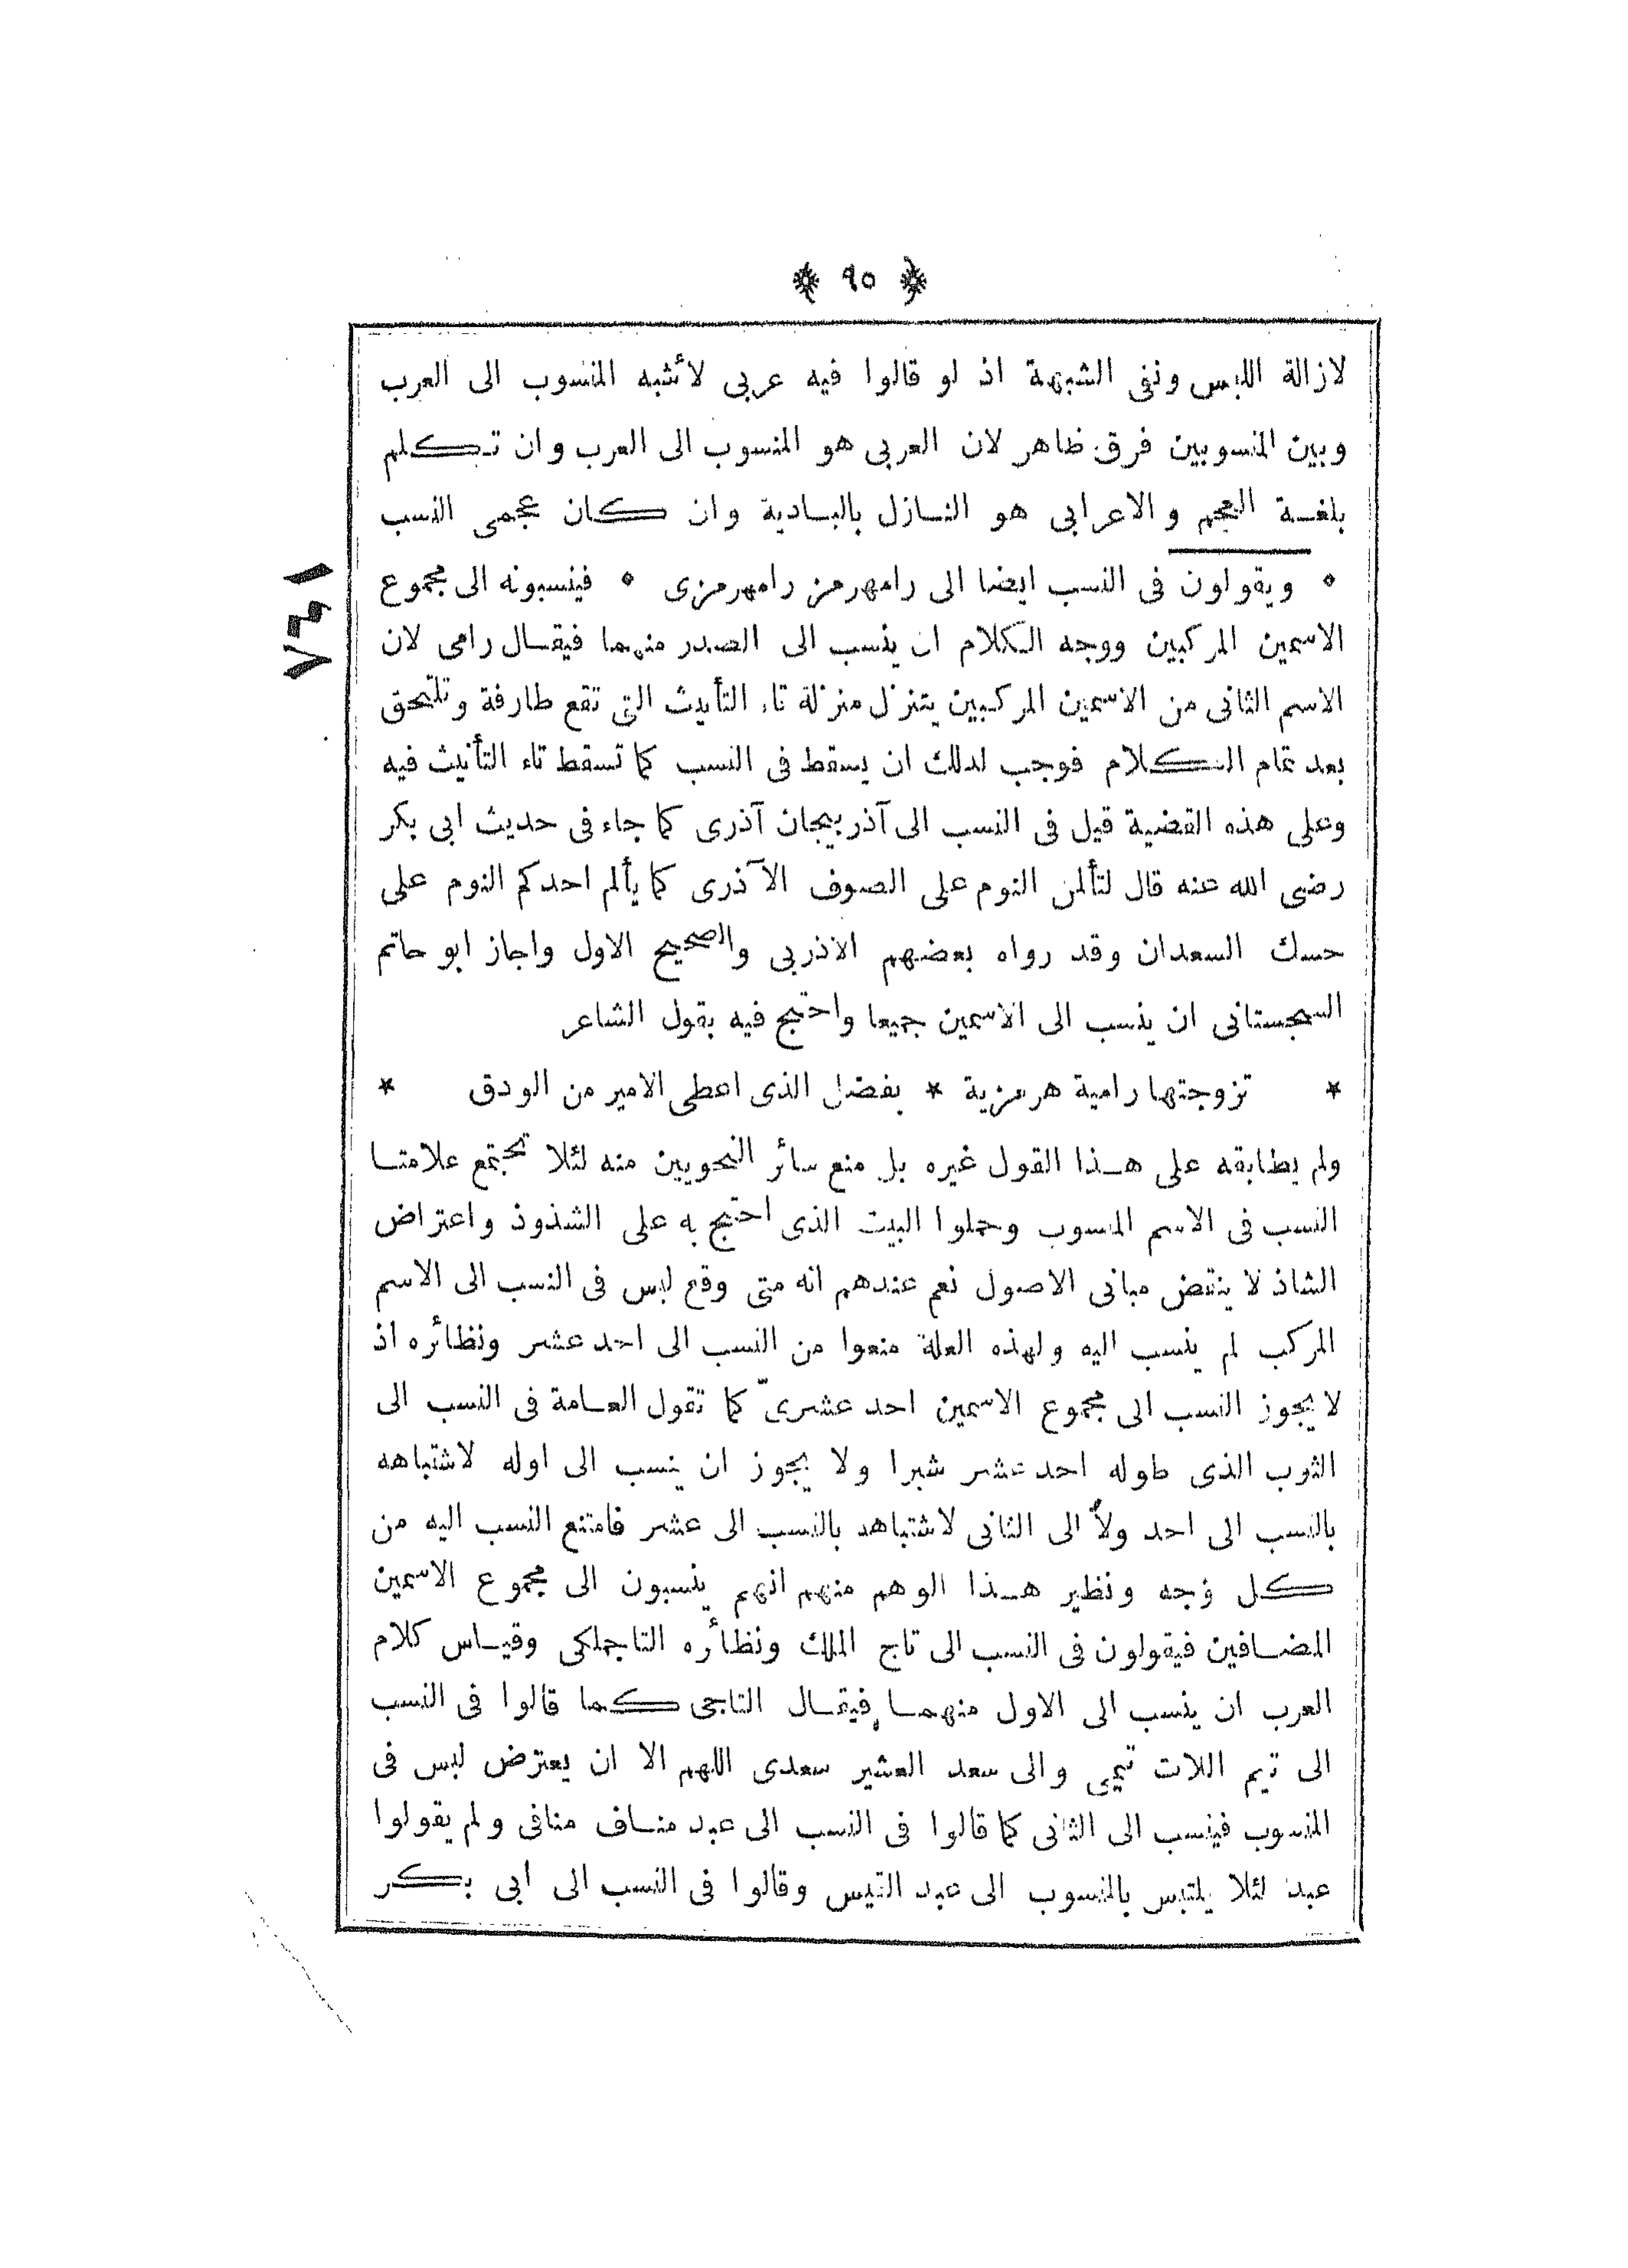 ﴿ ٩٥ ﴾
لازالة اللبس ونفى الشبهة اذ لو قالوا فيه عربى لأشبه المنسوب الى العرب
وبين المنسوبين فرق ظاهر لان العربى هو المنسوب الى العرب وان تكلم
بلغة العجم والاعرابى هو النازل بالبادية وان كان عجمى النسب
* ويقولون فى النسب ايضا الى رامهرمز رامهرمزى * فينسبونه الى مجموع
الاسمين المركبين ووجه الكلام ان ينسب الى الصدر منهما فيقال رامى لان
الاسم الثانى من الاسمين المركبين يتنزل منزلة تاء التأنيث التى تقع طارفة وتلتحق
بعد تمام الكلام فوجب لذلك ان يسقط فى النسب كما تسقط تاء التأنيث فيه
وعلى هذه القضية قيل فى النسب الى آذربيجان آذرى كما جاء فى حديث ابى بكر
رضى الله عنه قال لتألمن النوم على الصوف الآذرى كما يألم احدكم النوم على
حسك السعدان وقد رواه بعضهم الاذربى والصحيح الاول واجاز ابو حاتم
السجستانى ان ينسب الى الاسمين جميعا واحتج فيه بقول الشاعر
* تزوجتها رامية هرمزية * بفضل الذى اعطى الامير من الودق *
ولم يطابقه على هذا القول غيره بل منع سائر النحويين منه لئلا تجتمع علامتا
النسب فى الاسم المنسوب وحملوا البيت الذى احتج به على الشذوذ واعتراض
الشاذ لا ينتقض مبانى الاصول نعم عندهم انه متى وقع لبس فى النسب الى الاسم
المركب لم ينسب اليه ولهذه العلة منعوا من النسب الى احد عشر ونظائره اذ
لا يجوز النسب الى مجموع الاسمين احد عشرىّ كما تقول العامة فى النسب الى
الثوب الذى طوله احد عشر شبرا ولا يجوز ان ينسب الى اوله لاشتباهه
بالنسب الى احد ولا الى الثانى لاشتباهه بالنسب الى عشر فامتنع النسب اليه من
كل وجه ونظير هذا الوهم منهم انهم ينسبون الى مجموع الاسمين
المضافين فيقولون فى النسب الى تاج الملك ونظائره التاجملكى وقياس كلام
العرب ان ينسب الى الاول منهما فيقال التاجى كما قالوا فى النسب
الى تيم اللات تيمى والى سعد العشير سعدى اللهم الا ان يعترض لبس فى
المنسوب فينسب الى الثانى كما قالوا فى النسب الى عبد مناف منافى ولم يقولوا
عبد لئلا يلتبس بالمنسوب الى عبد القيس وقالوا فى النسب الى ابى بكر